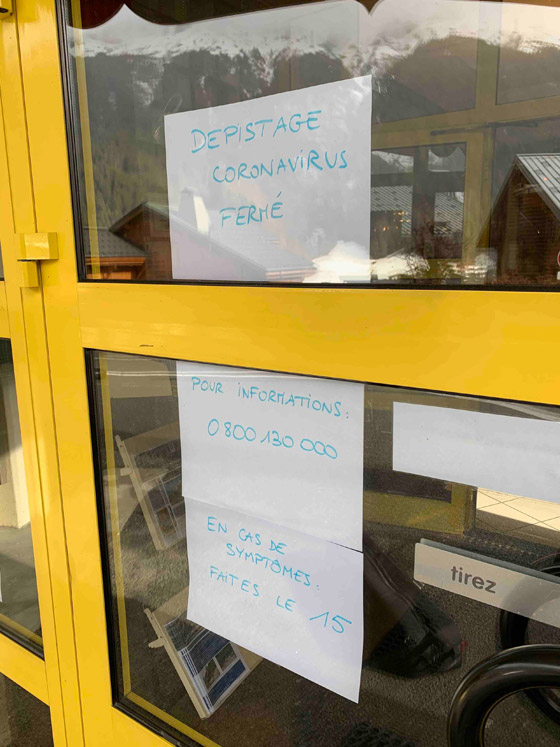 DEPISTAGE
CORONAViRUS
FERMÉ
POUR iNFORMATIONS:
0 800 130 000
EN CAS DE
SYMPTÔMES:
FAITES LE 15
tirez